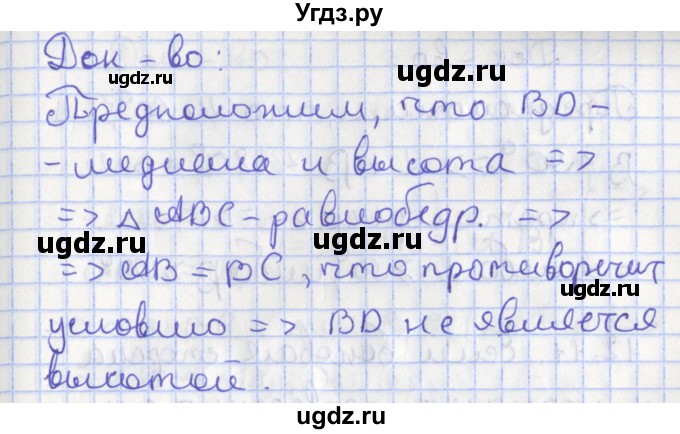 Угдз.ру
Док-во:
ugdz.ru
ugdz.ru
Предположим, что BD -
ugdz.ru
- медиана и высота =>
ugdz.ru
=> △ ABC - равнобедр. =>
ugdz.ru
ugdz.ru
=> AB = BC, что противоречит
ugdz.ru
условию => BD не является
ugdz.ru
ugdz.ru
высотой.
ugdz.ru